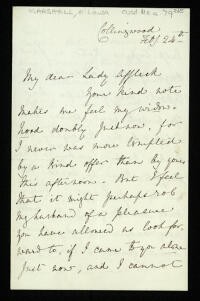 Collingwood
Feby 24th
My dear Lady Affleck
Your kind note
makes me feel my widow-
hood doubly just now, for
I never was more tempted
by a kind offer than by yours
this afternoon. But I feel
that it might perhaps rob
my husband of a pleasure
you have allowed us look for-
ward to, if I came to you alone
just now, and I cannot